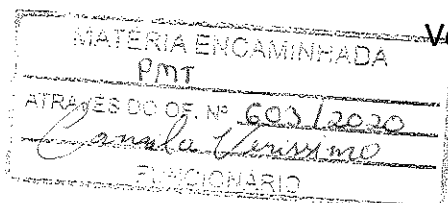 MATÉRIA ENCAMINHADA
PMT
ATRAVÉS DO OF. Nº 603/2020
Camila Verissimo
FUNCIONÁRIO